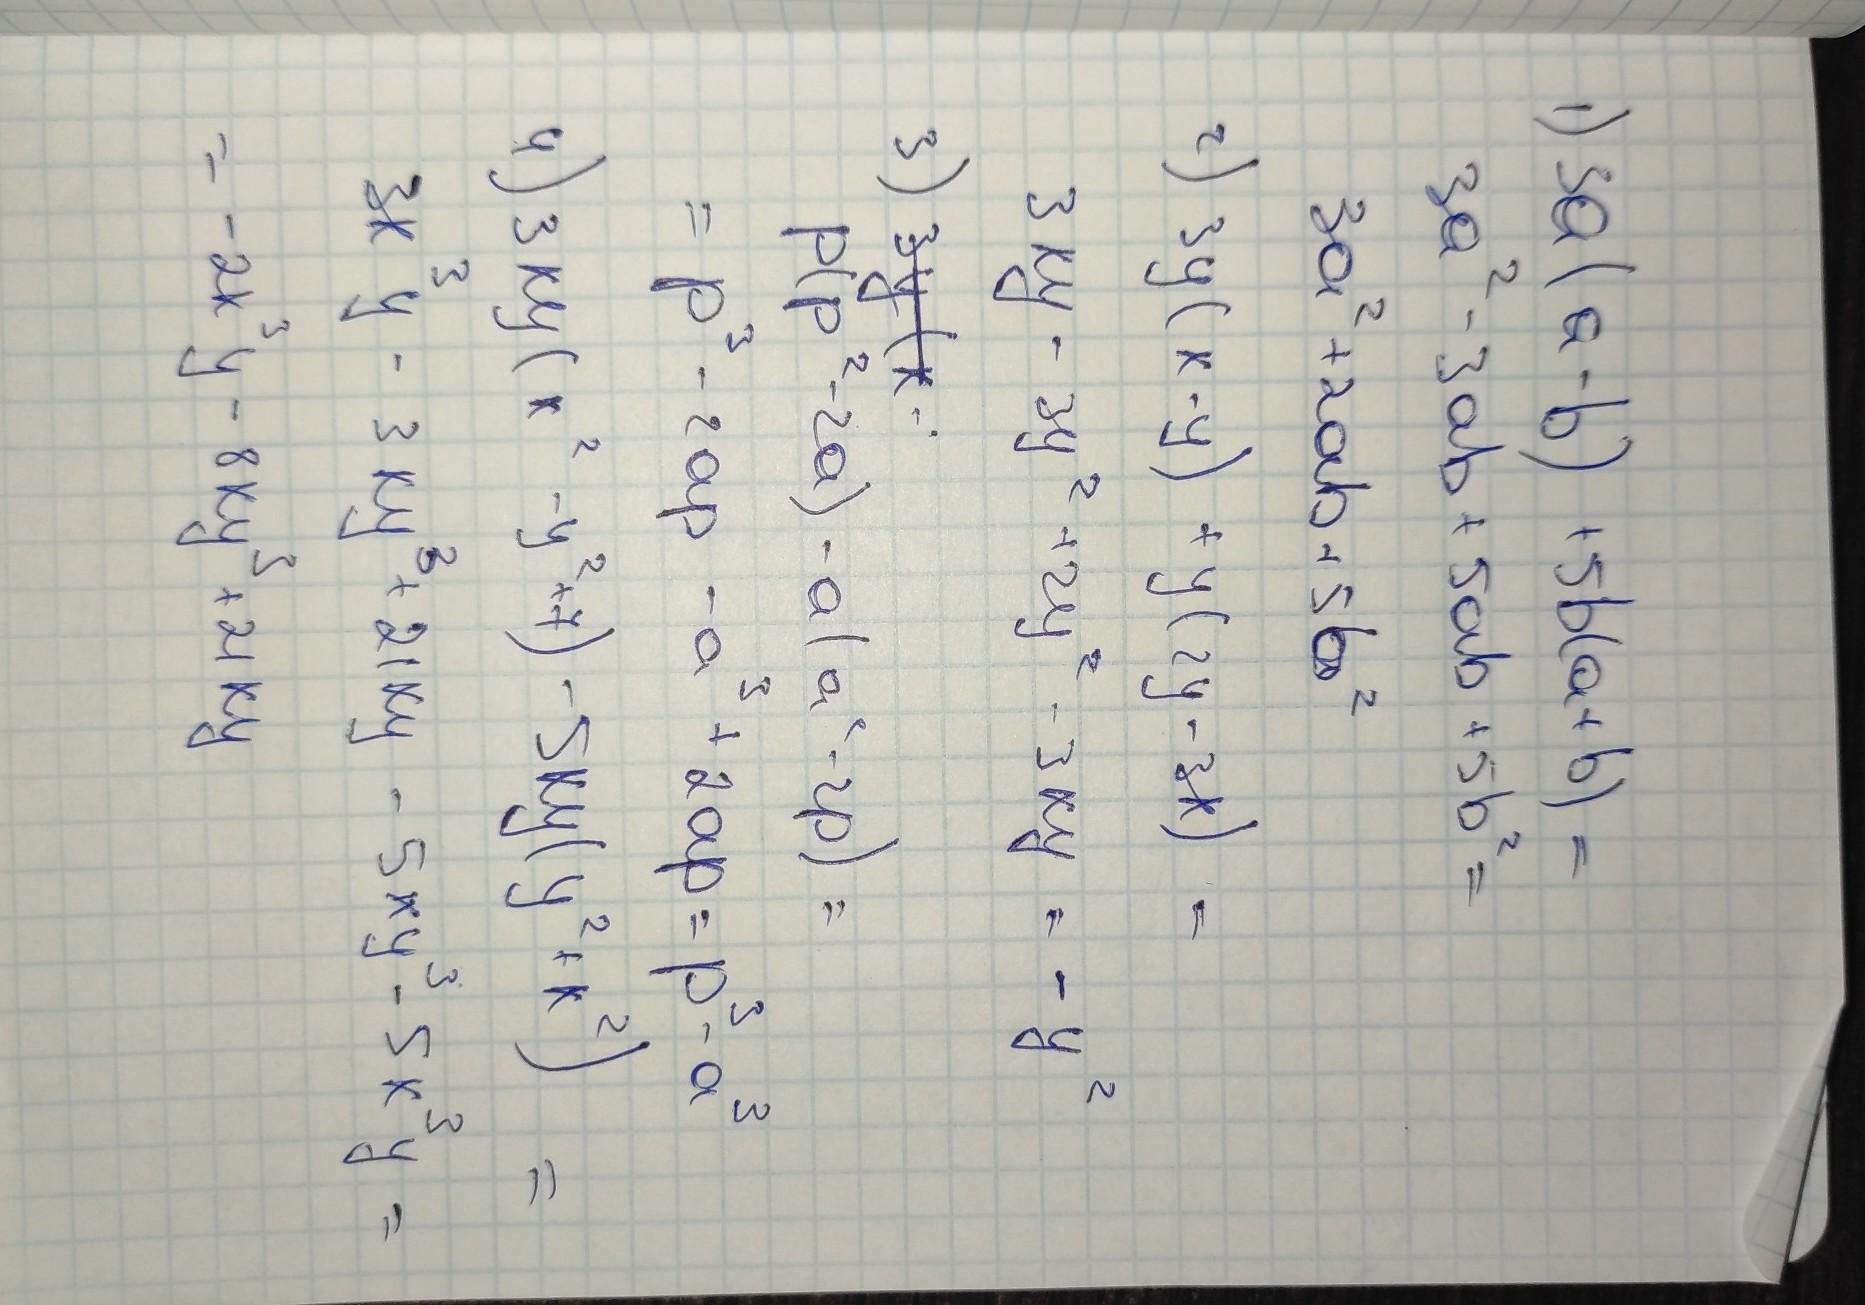 1) 3a(a-b) +5b(a+b) =
3a²-3ab+5ab+5b²=
3a²+2ab+5b²
2) 3y(x-y) +y(2y-3x) =
3xy-3y²+2y²-3xy = -y²
3) 3y(x-
p(p²-2a)-a(a²-2p) =
= p³-2ap-a³+2ap=p³-a³
4) 3xy(x²-y²+7)-5xy(y²+x²) =
3x³y-3xy³+21xy-5xy³-5x³y=
= -2x³y-8xy³+21xy